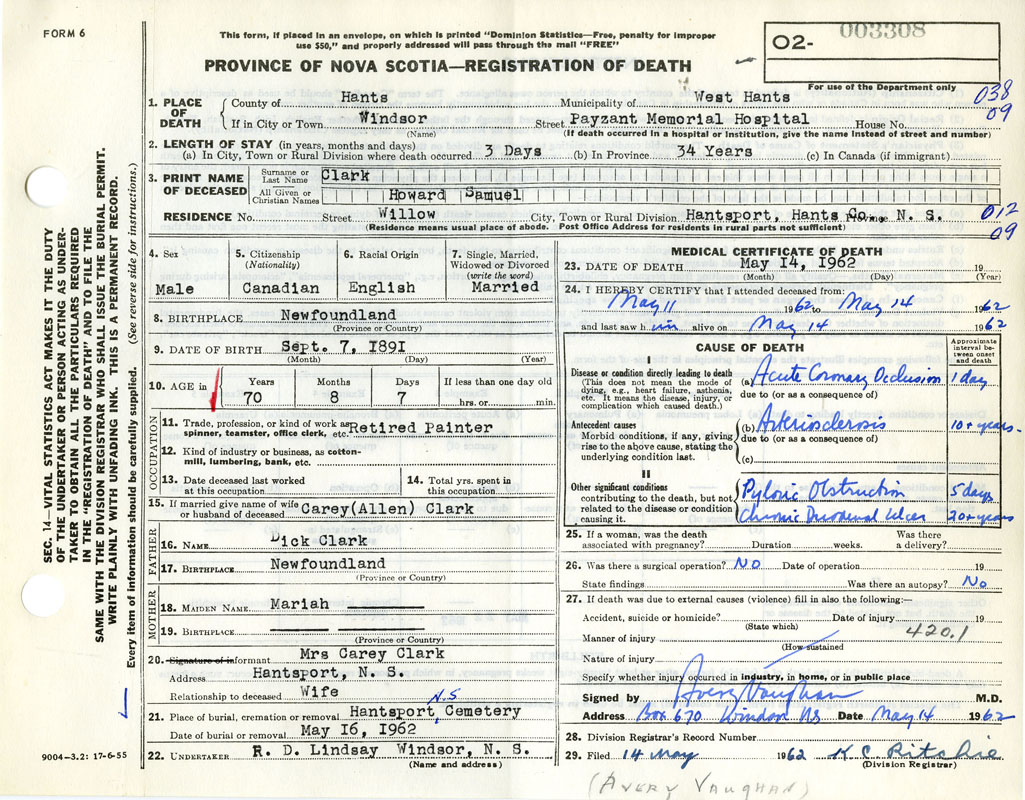 FORM 6
This form, if placed in an envelope, on which is printed "Dominion Statistics—Free, penalty for improper
use $50," and properly addressed will pass through the mail "FREE"
PROVINCE OF NOVA SCOTIA—REGISTRATION OF DEATH
02- 003308
For use of the Department only
SEC. 14—VITAL STATISTICS ACT MAKES IT THE DUTY
OF THE UNDERTAKER OR PERSON ACTING AS UNDER-
TAKER TO OBTAIN ALL THE PARTICULARS REQUIRED
IN THE "REGISTRATION OF DEATH" AND TO FILE THE
SAME WITH THE DIVISION REGISTRAR WHO SHALL ISSUE THE BURIAL PERMIT.
WRITE PLAINLY WITH UNFADING INK. THIS IS A PERMANENT RECORD.
Every item of information should be carefully supplied. (See reverse side for instructions.)
1. PLACE OF DEATH
County of Hants Municipality of West Hants 038
If in City or Town Windsor Street Payzant Memorial Hospital House No. 09
(Name) (If death occurred in a hospital or institution, give the name instead of street and number)
2. LENGTH OF STAY (in years, months and days)
(a) In City, Town or Rural Division where death occurred 3 Days (b) In Province 34 Years (c) In Canada (if immigrant)
3. PRINT NAME OF DECEASED
Surname or Last Name Clark
All Given or Christian Names Howard Samuel
RESIDENCE No. Street Willow City, Town or Rural Division Hantsport, Hants Co., Province N. S. 012
(Residence means usual place of abode. Post Office Address for residents in rural parts not sufficient) 09
4. Sex 5. Citizenship (Nationality) 6. Racial Origin 7. Single, Married, Widowed or Divorced (write the word)
Male Canadian English Married
8. BIRTHPLACE Newfoundland
(Province or Country)
9. DATE OF BIRTH Sept. 7, 1891
(Month) (Day) (Year)
10. AGE in Years Months Days If less than one day old
70 8 7 hrs. or min.
OCCUPATION
11. Trade, profession, or kind of work as
spinner, teamster, office clerk, etc. Retired Painter
12. Kind of industry or business, as cotton-
mill, lumbering, bank, etc.
13. Date deceased last worked at this occupation
14. Total yrs. spent in this occupation
15. If married give name of wife or husband of deceased Carey(Allen) Clark
FATHER
16. NAME Dick Clark
17. BIRTHPLACE Newfoundland
(Province or Country)
MOTHER
18. MAIDEN NAME Mariah
19. BIRTHPLACE
(Province or Country)
20. Signature of informant Mrs Carey Clark
Address Hantsport, N. S.
Relationship to deceased Wife
N.S.
21. Place of burial, cremation or removal Hantsport Cemetery
Date of burial or removal May 16, 1962
22. UNDERTAKER R. D. Lindsay Windsor, N. S.
(Name and address)
9004—3.2: 17-6-55
MEDICAL CERTIFICATE OF DEATH
23. DATE OF DEATH May 14, 1962 19
(Month) (Day) (Year)
24. I HEREBY CERTIFY that I attended deceased from:
May 11 1962 to May 14 1962
and last saw him alive on May 14 1962
CAUSE OF DEATH
Approximate interval between onset and death
I
Disease or condition directly leading to death
(This does not mean the mode of dying, e.g., heart failure, asthenia, etc. It means the disease, injury, or complication which caused death.)
(a) Acute Coronary Occlusion 1 day
due to (or as a consequence of)
Antecedent causes
Morbid conditions, if any, giving rise to the above cause, stating the underlying condition last.
(b) Arteriosclerosis 10+ years
due to (or as a consequence of)
(c)
II
Other significant conditions
contributing to the death, but not related to the disease or condition causing it.
Pyloric Obstruction 5 days
Chronic Duodenal Ulcer 20+ years
25. If a woman, was the death associated with pregnancy? Duration weeks. Was there a delivery?
26. Was there a surgical operation? No Date of operation 19
State findings Was there an autopsy? No
27. If death was due to external causes (violence) fill in also the following:—
Accident, suicide or homicide? Date of injury 19
(State which)
420.1
Manner of injury
(How sustained
Nature of injury
Specify whether injury occurred in industry, in home, or in public place
Signed by Avery Vaughan M.D.
Address Box 670 Windsor NS Date May 14 1962
28. Division Registrar's Record Number
29. Filed 14 May 1962 K C Ritchie
(Division Registrar)
(AVERY VAUGHAN)